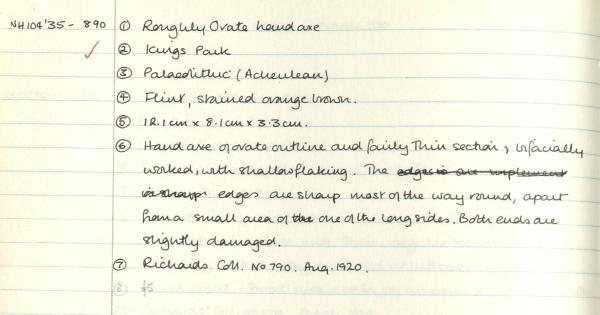 NH104'35 - 890 ① Roughly Ovate handaxe
② Kings Park
③ Palaeolithic (Acheulean)
④ Flint, stained orange brown.
⑤ 12.1cm x 8.1cm x 3.3cm.
⑥ Hand axe of ovate outline and fairly thin section, bifacially
worked, with shallow flaking. The edges is are implement
is sharp edges are sharp most of the way round, apart
from a small area of the one of the long sides. Both ends are
slightly damaged.
⑦ Richards Coll. No 790. Aug. 1920.
⑧ £5